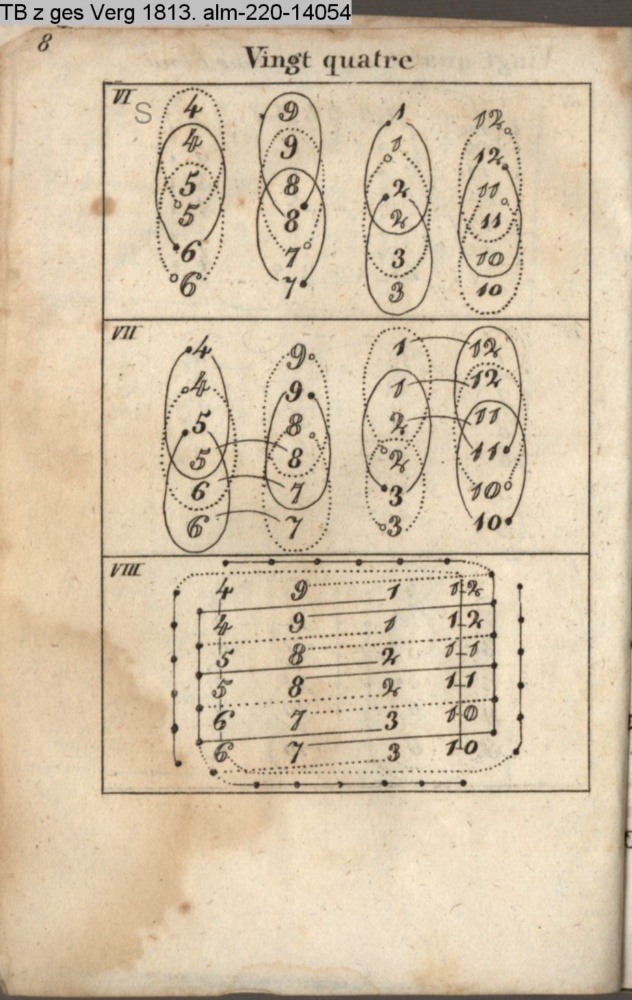 TB z ges Verg 1813. alm-220-14054
8
Vingt quatre
VI
S
4 9 1 12
4 9 1 12
5 8 2 11
5 8 2 11
6 7 3 10
6 7 3 10
VII
4 9 1 12
4 9 1 12
5 8 2 11
5 8 2 11
6 7 3 10
6 7 3 10
VIII
4 9 1 12
4 9 1 12
5 8 2 11
5 8 2 11
6 7 3 10
6 7 3 10